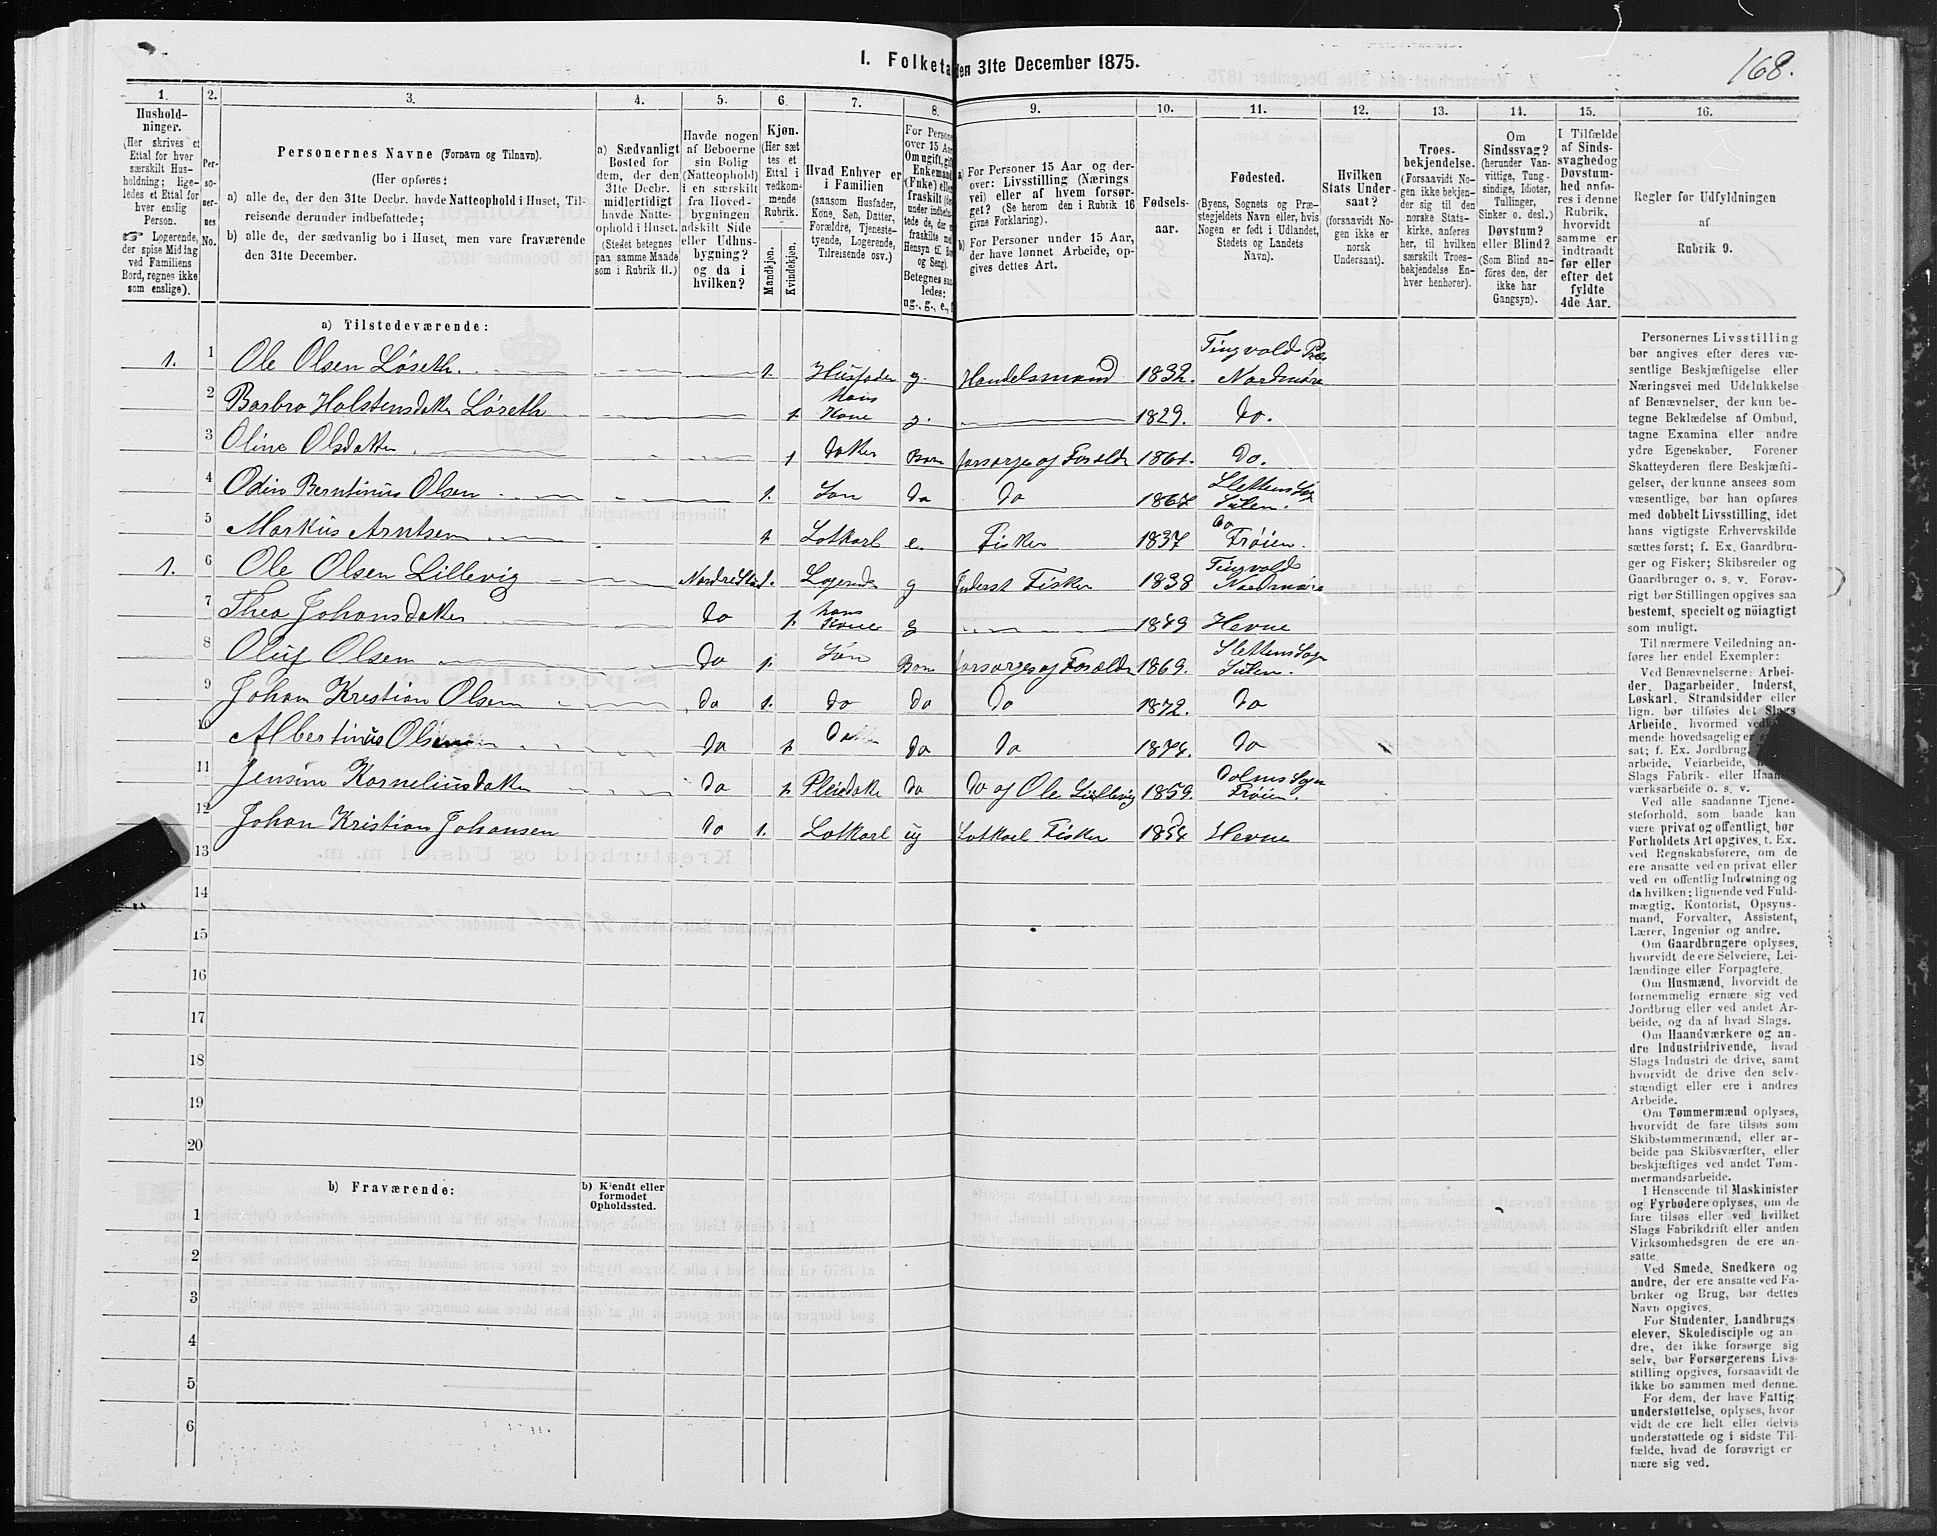 168.
1. Folketa
den 31te December 1875.
1. 2. 3. 4. 5. 6. 7. 8. 9. 10. 11. 12. 13. 14. 15. 16.
Hushold-
ninger.
(Her skrives et
Ettal for hver
særskilt Hus-
holdning; lige-
ledes et Ettal for
hver enslig
Person.
☞ Logerende,
der spise Middag
ved Familiens
Bord, regnes ikke
som enslige).
Per-
so-
ner-
nes
No.
Personernes Navne (Fornavn og Tilnavn).
(Her opføres:
a) alle de, der den 31te Decbr. havde Natteophold i Huset, Til-
reisende derunder indbefattede;
b) alle de, der sædvanlig bo i Huset, men vare fraværende
den 31te December.
a) Sædvanligt
Bosted for
dem, der den
31te Decbr.
midlertidigt
havde Natte-
ophold i Huset.
(Stedet betegnes
paa samme Maade
som i Rubrik 11.)
Havde nogen
af Beboerne
sin Bolig
(Natteophold)
i en særskilt
fra Hoved-
bygningen
adskilt Side
eller Udhus-
bygning?
og da i
hvilken?
Kjøn.
(Her sæt
tes et
Ettal i
vedkom-
mende
Rubrik.
Mandkjøn.
Kvindekjøn.
Hvad Enhver er
i Familien
(saasom Husfader,
Kone, Søn, Datter,
Forældre, Tjeneste-
tyende, Logerende,
Tilreisende osv.)
For Persone
over 15 Aa
Om ugift, gif
Enkemand
(Enke) elle
fraskilt
under indbe
tede de, d
fraskilte
Hensyn til Bo
og Seng).
Betegnes saa
ledes:
ug., g., e.,
a) For Personer 15 Aar og der-
over: Livsstilling (Nærings
vei) eller af hvem forsør-
get? (Se herom den i Rubrik 16
givne Forklaring).
b) For Personer under 15 Aar,
der have lønnet Arbeide, op-
gives dettes Art.
Fødsels-
aar.
Fødested.
(Byens, Sognets og Præ-
stegjeldets Navn eller, hvis
Nogen er født i Udlandet,
Stedets og Landets
Navn).
Hvilken
Stats Under-
saat?
(forsaavidt No-
gen ikke er
norsk
Undersaat).
Troes-
bekjendelse.
(Forsaavidt No-
gen ikke bekjen-
der sig til den
norske Stats-
kirke, anføres
her, til hvilken
særskilt Troes-
bekjendelse En-
hver henhører).
Om
Sindssvag?
(herunder Van-
vittige, Tung-
sindige, Idioter,
Tullinger,
Sinker o. desl.)
Døvstum?
eller Blind?
(Som Blind an-
føres den, der
ikke har
Gangsyn).
I Tilfælde
af Sinds-
svaghedog
Døvstum-
hed anfø-
res i denne
Rubrik,
hvorvidt
samme er
indtraadt
før eller
efter det
fyldte
4de Aar.
Regler for Udfyldningen
af
Rubrik 9.
a) Tilstedeværende:
1. 1 Ole Olsen Løseth 1. Husfader g. Handelsmand 1832. Tingvold Pr Nordmøre
2 Barbro Holstensdatter Løseth 1 hans Kone g. 1829. Do.
3 Oline Olsdatter 1 datter Barn forsørges af Foræld 1861. Do.
4 Odin Berntinus Olsen 1. Søn do do 1867 Slettens Sogn Sulen.
5 Markus Arntsen 1 Lotkarl e. Fisker 1837 do Frøien.
1. 6 Ole Olsen Lillevig Nordre Stad. Logerende g Inderst Fisker 1838 Tingvold Nordmøre
7 Thea Johansdatter Do 1 hans Kone g 1849 Hevne
8 Oluf Olsen Do 1. Søn Barn forsørges af Foræld 1869. Slettens Sogn Sulen.
9 Johan Kristian Olsen Do 1. do do do 1872. do
10 Albertinus Olsen Do 1 Datter do do 1874. do
11 Jensine Korneliusdatter Do 1 Pleiedatter do do af Ole Lillevig 1859. Dolms Sogn Frøien.
12 Johan Kristian Johansen Do 1. Lotkarl ug Lotkarl Fisker 1854 Hevne
13
14
15
16
17
18
19
20
b) Fraværende:
b) Kjendt eller
formodet
Opholdssted.
1
2
3
4
5
6
Personernes Livsstilling
bør angives efter deres væ-
sentlige Beskjæftigelse eller
Næringsvei med Udelukkelse
af Benævnelser, der kun be-
tegne Beklædelse af Ombud,
tagne Examina eller andre
ydre Egenskaber. Forener
Skatteyderen flere Beskjæfti-
gelser, der kunne ansees som
væsentlige, bør han opføres
med dobbelt Livsstilling, idet
hans vigtigste Erhvervskilde
sættes først; f. Ex. Gaardbru-
ger og Fisker; Skibsreder og
Gaardbruger o. s. v. Forøv-
rigt bør Stillingen opgives saa
bestemt, specielt og nöiagtigt
som muligt.
Til nærmere Veiledning an-
føres her endel Exempler:
Ved Benævnelserne: Arbei-
der, Dagarbeider, Inderst,
Løskarl, Strandsidder eller
lign. bør tilføies det Slags
Arbeide, hvormed vedkom-
mende hovedsagelig er
sat; f. Ex. Jordbrug,
arbeide, Veiarbeide,
Slags Fabrik- eller Haand-
værksarbeide o. s. v.
Ved alle saadanne Tjene-
steforhold, som baade kan
være privat og offentligt, bør
Forholdets Art opgives, f. Ex.
ved Regnskabsførere, om de
ere ansatte ved en privat eller
ved en offentlig Indretning og
da hvilken; lignende ved Fuld-
mægtig, Kontorist, Opsyns-
mand, Forvalter, Assistent,
Lærer, Ingeniør og andre.
Om Gaardbrugere oplyses,
hvorvidt de ere Selveiere, Lei-
lændinge eller Forpagtere.
Om Husmænd, hvorvidt de
fornemmelig ernære sig ved
Jordbrug eller ved andet Ar-
beide, og da af hvad Slags.
Om Haandværkere og an-
dre Industridrivende, hvad
Slags Industri de drive, samt
hvorvidt de drive den selv-
stændigt eller ere i andres
Arbeide.
Om Tømmermænd oplyses,
hvorvidt de fare tilsøs som
Skibstømmermænd, eller ar-
beide paa Skibsværfter, eller
beskjæftiges ved andet Tøm-
mermandsarbeide.
I Henseende til Maskinister
og Fyrbødere oplyses, om de
fare tilsøs eller ved hvilket
Slags Fabrikdrift eller anden
Virksomhedsgren de ere an-
satte.
Ved Smede, Snedkere og
andre, der ere ansatte ved Fa-
briker og Brug, bør dettes
Navn opgives.
For Studenter, Landbrugs
elever, Skoledisciple og an-
dre, der ikke forsørge sig
selv, bør Forsørgerens Livs-
stilling opgives, forsaavidt de
ikke bo sammen med denne.
For dem, der have Fattig
understøttelse, oplyses, hvor
vidt de ere helt eller delvis
understøttede og i sidste Til-
fælde, hvad de forøvrigt er
nære sig ved.